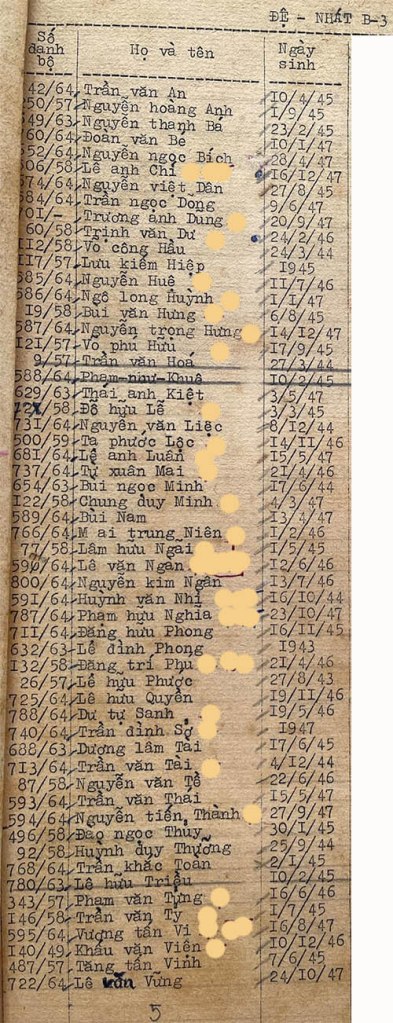 ĐỆ - NHẤT B-3
Số danh bộ Họ và tên Ngày sinh
42/64 Trần văn An 10/4/45
250/57 Nguyễn hoàng Anh 1/9/45
549/63 Nguyễn thanh Bá 23/2/45
60/64 Đoàn văn Be 10/1/47
552/64 Nguyễn ngọc Bích 28/4/47
506/58 Lê anh Chí 16/12/47
574/64 Nguyễn việt Dân 27/8/45
584/64 Trần ngọc Dõng 9/6/47
701/- Trương anh Dung 20/9/47
60/58 Trịnh văn Dư 24/2/46
112/58 Võ công Hầu 24/3/44
117/57 Lưu kiếm Hiệp 1945
585/64 Nguyễn Huê 11/7/46
586/64 Ngô long Huỳnh 1/1/47
19/58 Bùi văn Hưng 6/8/45
587/64 Nguyễn trong Hưng 14/12/47
121/57 Võ phú Hữu 17/9/45
9/57 Trần văn Hoá 27/3/44
588/64 Phạm-như-Khuê 10/2/45
629/63 Thái anh Kiệt 3/5/47
58 Đỗ hữu Lê 3/3/45
731/64 Nguyễn văn Liêc 8/12/44
500/59 Tạ phước Lộc 14/11/46
681/64 Lê anh Luân 15/5/47
737/64 Từ xuân Mai 21/4/46
654/63 Bùi ngọc Minh 17/6/44
122/58 Chung duy Minh 4/3/47
589/64 Bùi Nam 13/4/47
766/64 M ai trung Niên 1/2/46
77/58 Lâm hưu Ngãi 1/5/45
590/64 Lê văn Ngân 12/6/46
800/64 Nguyễn kim Ngân 13/7/46
591/64 Huỳnh văn Nhị 16/10/44
787/64 Phạm hưu Nghĩa 23/10/47
711/64 Đặng hưu Phong 16/11/45
632/63 Lê đình Phong 1943
132/58 Đặng trí Phu 21/4/46
26/57 Lê hưu Phược 27/8/43
725/64 Lê hưu Quyền 19/11/46
788/64 Dư tự Sanh 19/5/46
740/64 Trần đình Sợ 1947
688/63 Dương lâm Tài 17/6/45
713/64 Trần văn Tài 4/12/44
87/58 Nguyễn văn Tề 22/6/46
593/64 Trần văn Thái 15/5/47
594/64 Nguyễn tiến Thành 27/9/47
496/58 Đào ngọc Thùy 30/1/45
92/58 Huỳnh duy Thưởng 25/9/44
768/64 Trần khắc Toàn 2/1/45
780/63 Lê hữu Triều 10/2/45
343/57 Phạm văn Tựng 16/6/46
146/58 Trần văn Tý 1/7/45
595/64 Vương tấn Vi 16/8/47
140/49 Khấu văn Viên 10/12/46
487/57 Tăng tấn Vinh 7/6/45
722/64 Lê văn Vững 24/10/47
5